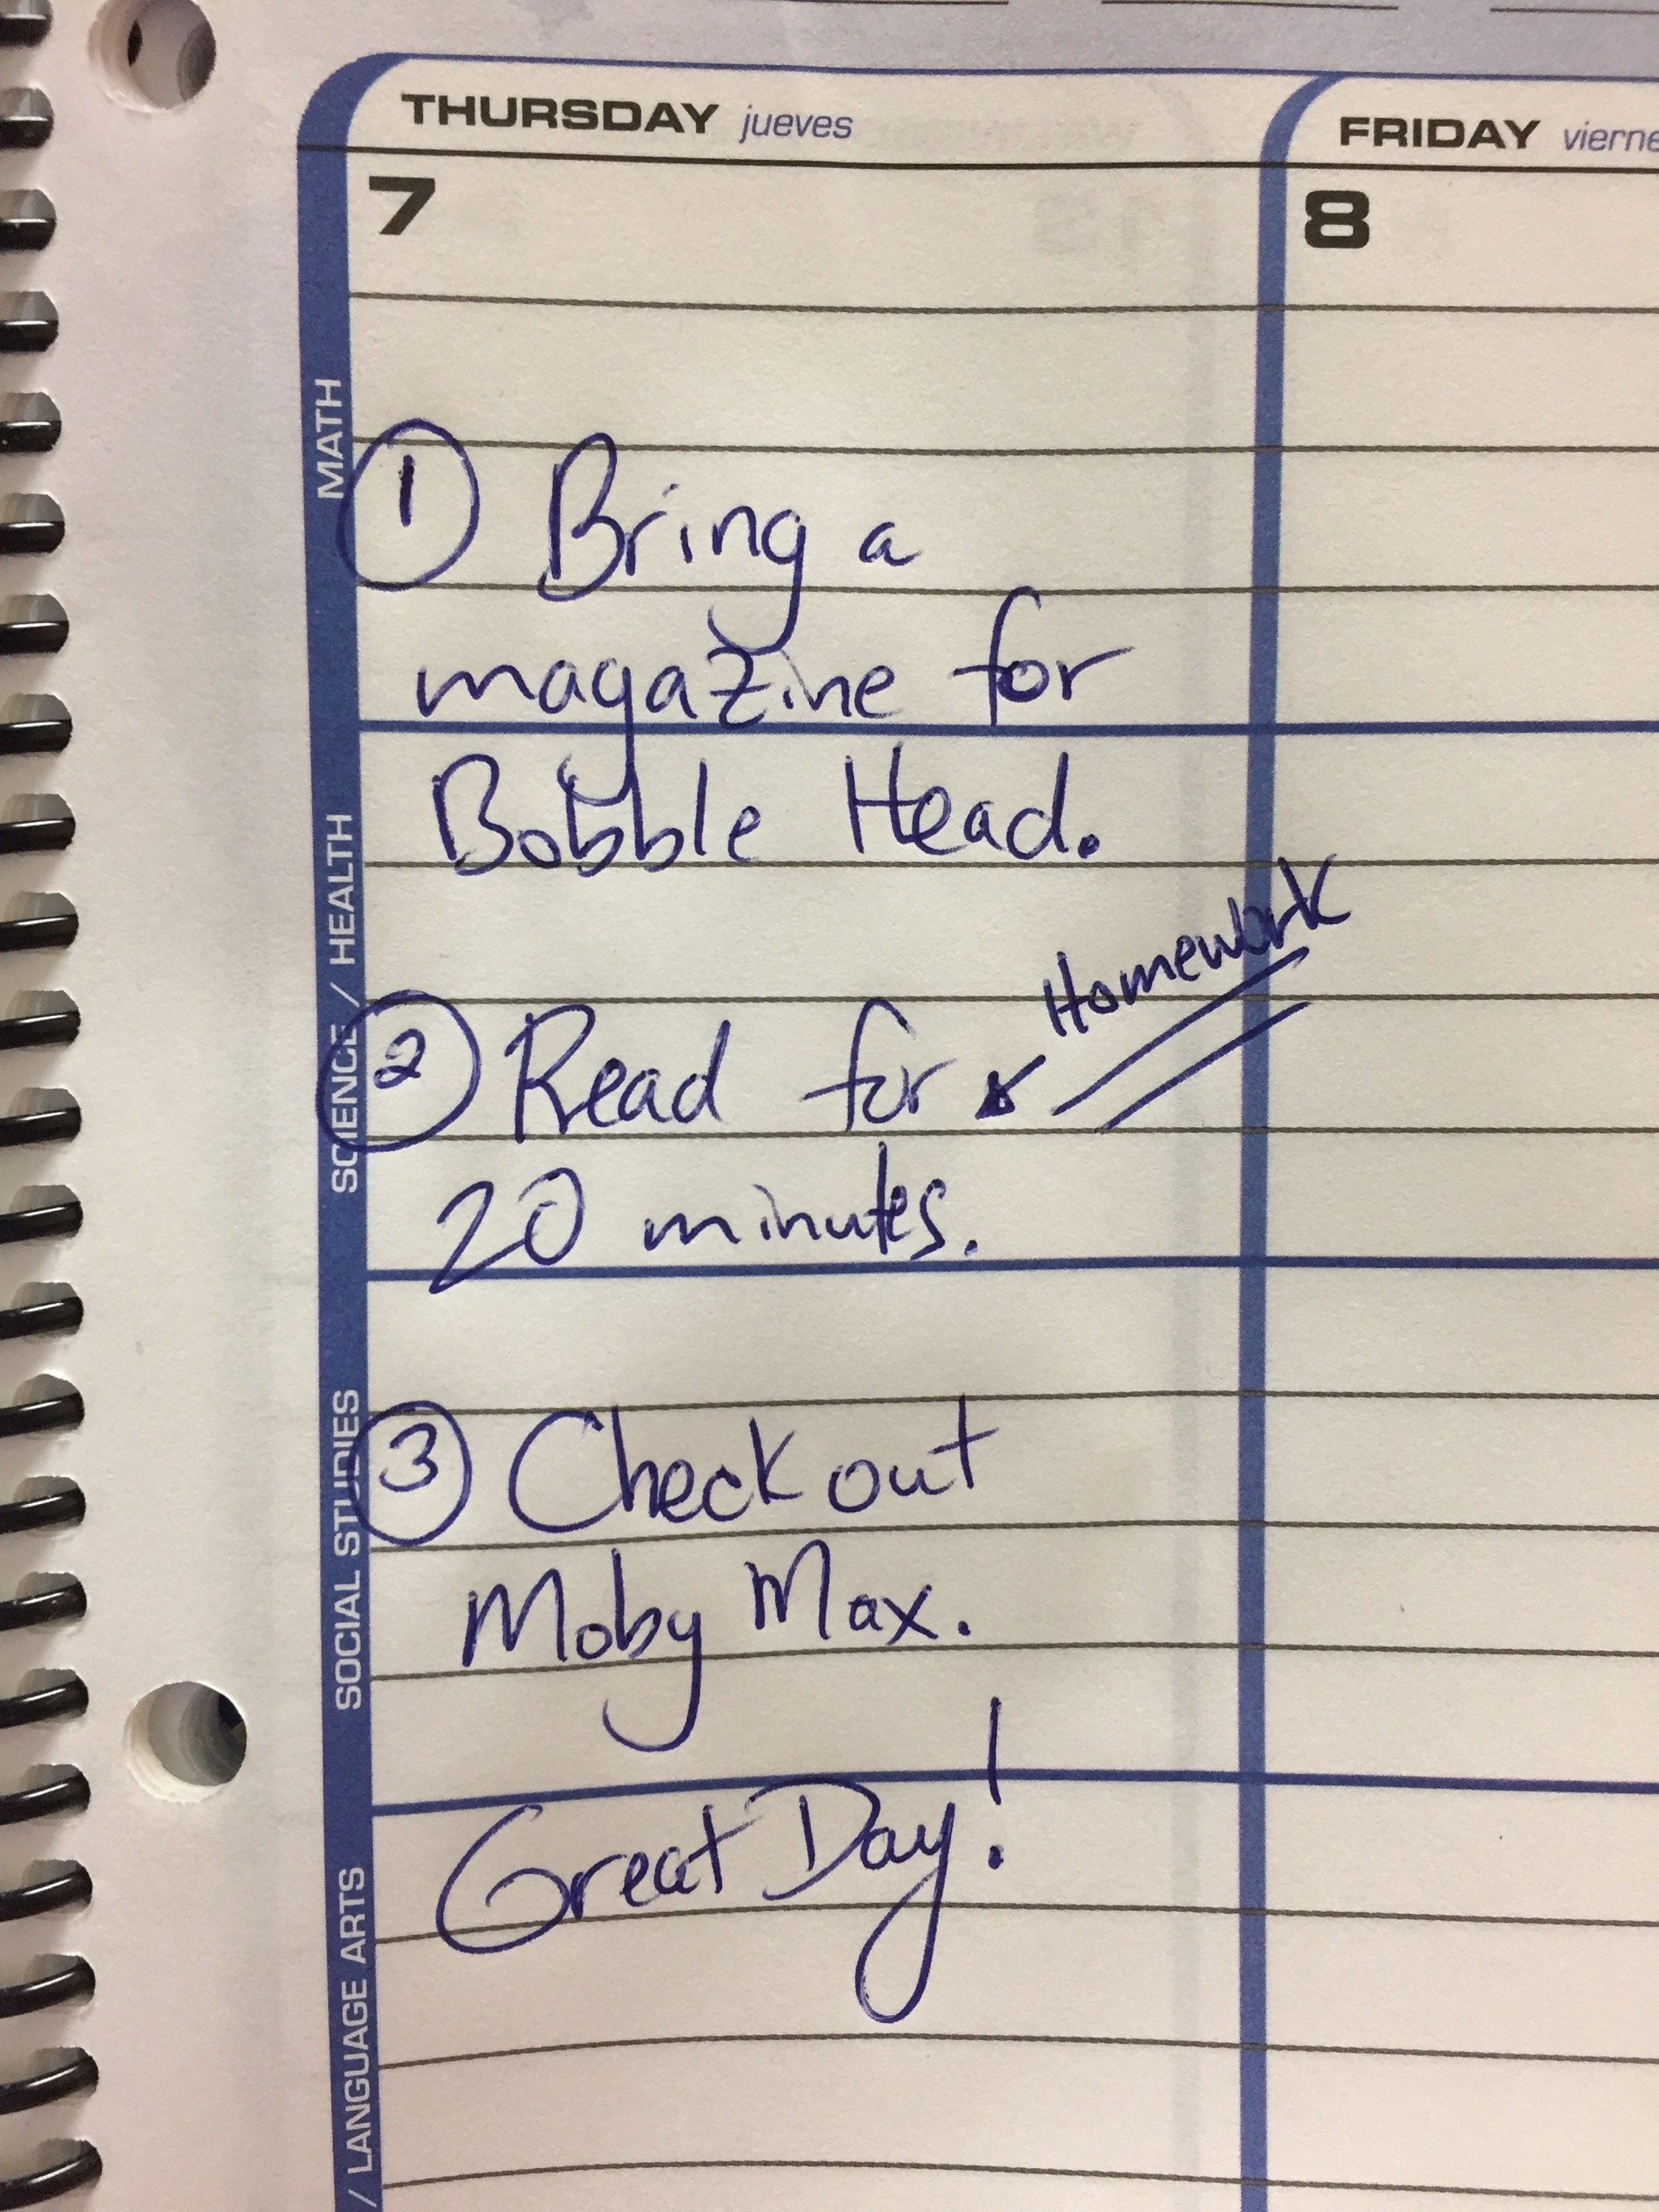 THURSDAY jueves
FRIDAY vierne
7
8
MATH
① Bring a
magazine for
Bobble Head.
SCIENCE / HEALTH
Homework
② Read for
20 minutes.
SOCIAL STUDIES
③ Check out
Moby Max.
Great Day!
/ LANGUAGE ARTS